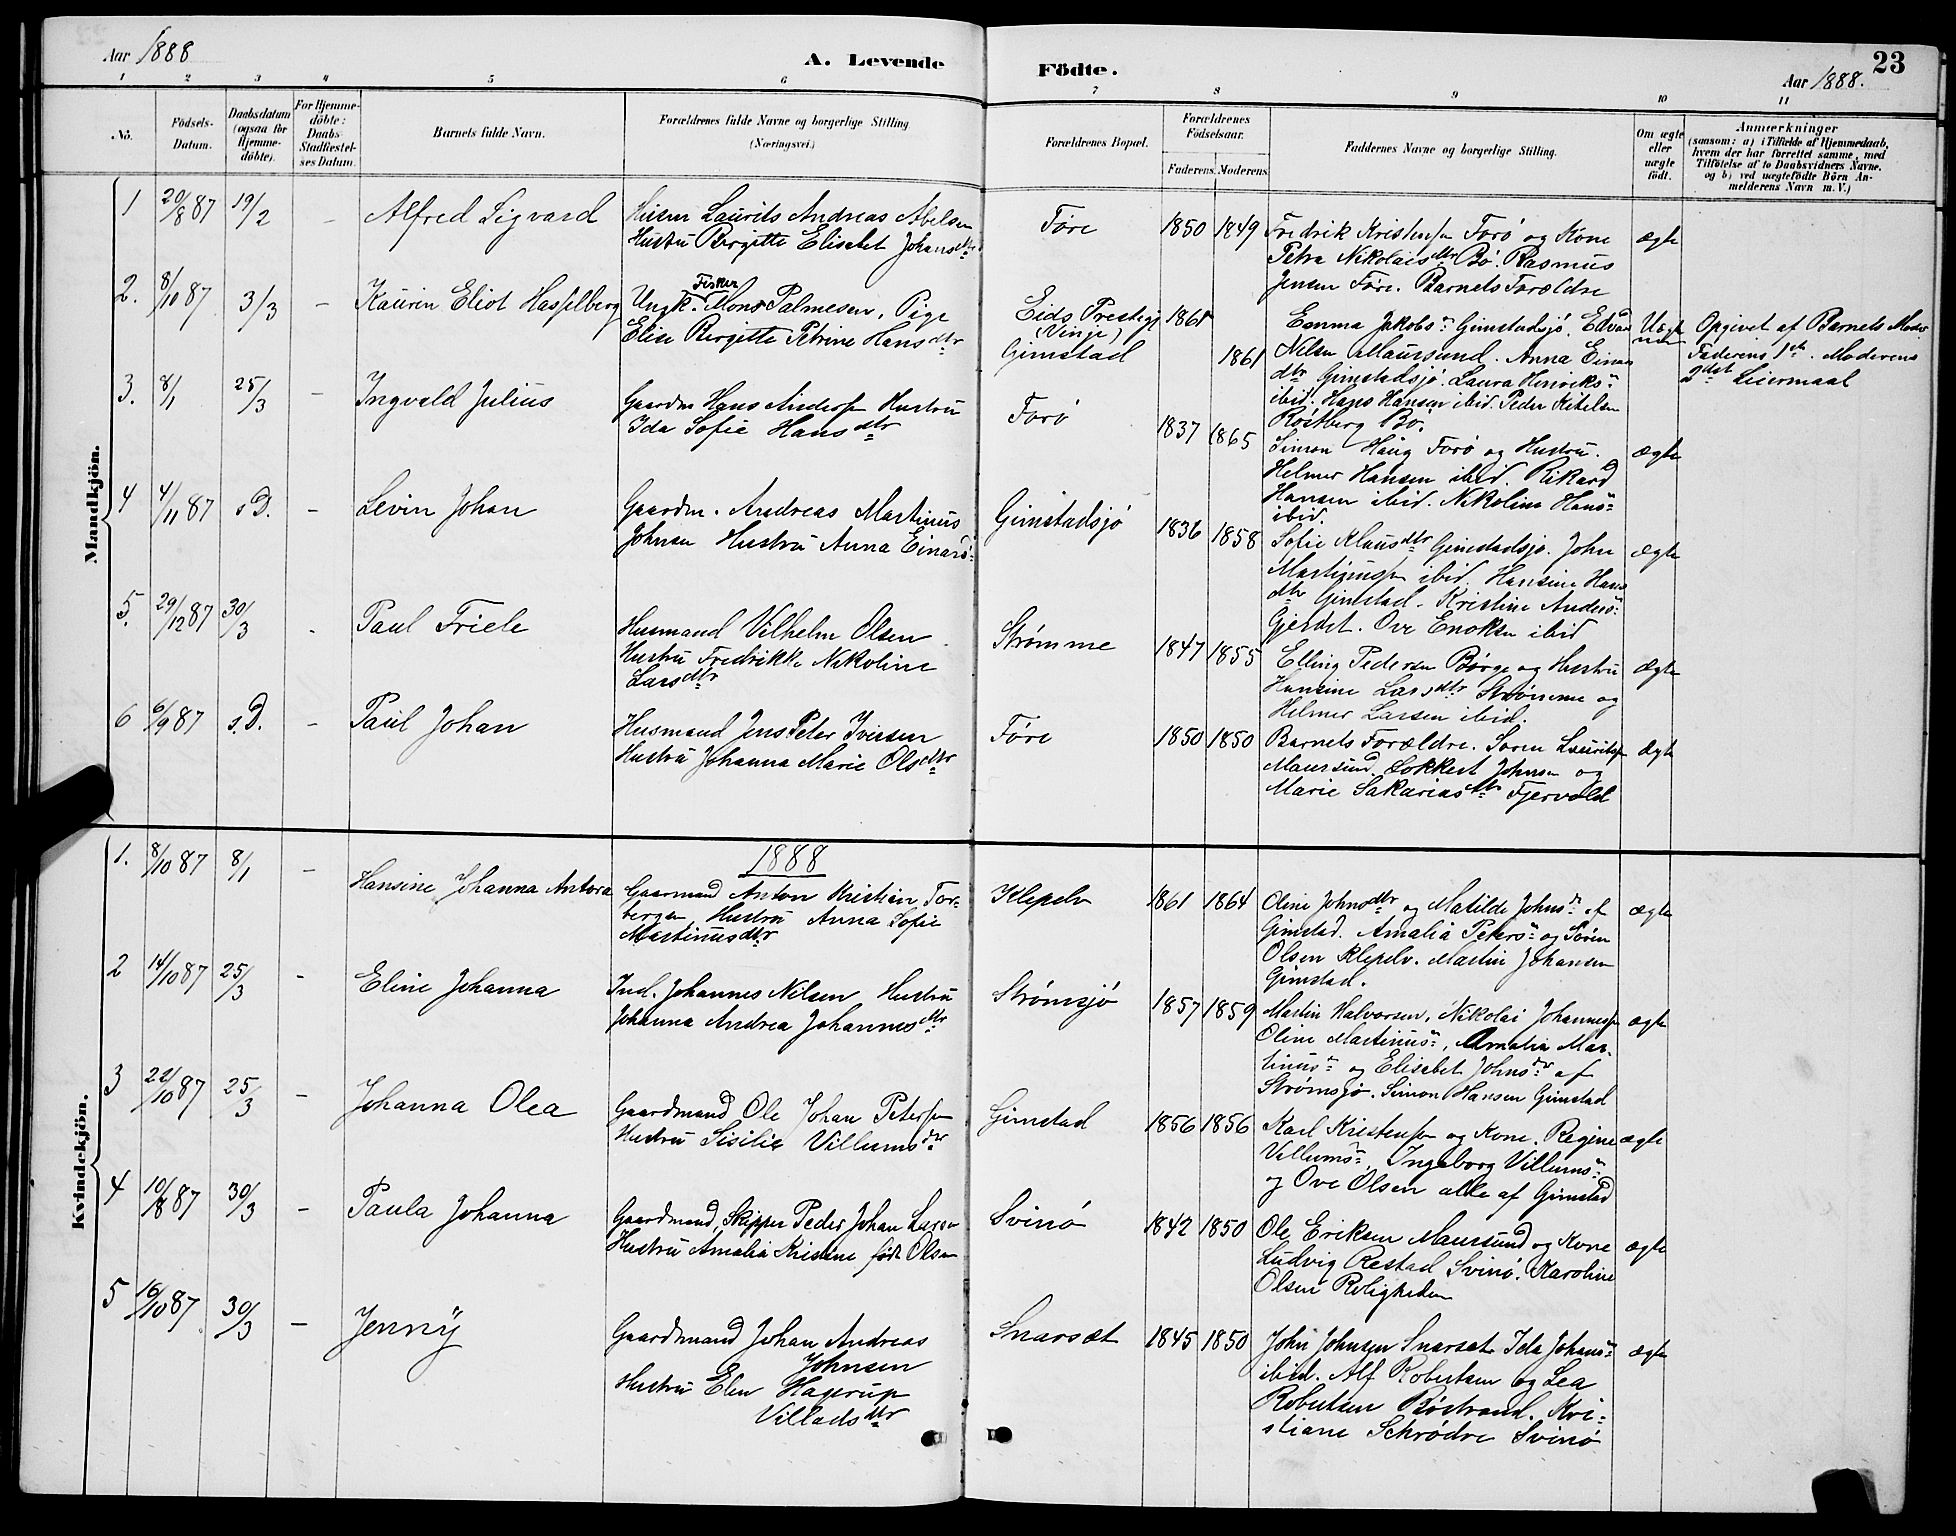 Aar 1888
A. Levende Födte.
Aar 1888.
23
1 2 3 4 5 6 7 8 9 10 11
No.
Födsels-Datum.
Daabsdatum (ogsaa for Hjemme-döbte).
For Hjemme-döbte: Daabs-Stadfæstel-ses Datum.
Barnets fulde Navn.
Forældrenes fulde Navne og borgerlige Stilling (Næringsvei.)
Forældrenes Bopæl.
Forældrenes Födselsaar.
Faderens. Moderens.
Faddernes Navne og borgerlige Stilling.
Om ægte eller uægte födt.
Anmærkninger
(saasom: a) i Tilfælde af Hjemmedaab,
hvem der har forrettet samme, med
Tilföielse af to Daabsvidners Navne.
og b) ved uægtefödte Börn An-
melderens Navn m. V.)
Mandkjön.
1 20/8 87 19/2 – Alfred Sigvard
Laurits Andreas Abelsen
Hustru Birgitte Elisabet Johansdtr
Føre 1850 1849
Fredrik Kristensen Forø og Kone
Petra Nikolaisdtr Bø. Rasmus
Jensen Føre. Barnets Forældre
ægte
2. 8/10 87 3/3 – Kaurin Eliot Hasselberg
Ungk. Fisker Mons Palmesen, Pige
Elise Birgitte Petrine Hansdtr
Eids Prestegj (Vinje) 1861
Gimstad 1861
Emma Jakobsn Gimstadsjø. Edvard
Nilsen Maursund. Anna Einars
dtr Gimstadsjø. Laura Hinriksn
ibid. Hans Hansen ibid. Peder Kitelsen
Røstberg Bø.
Uægte
Opgivet af Barnets Moder
Faderens 1ste. Moderens
2det Leiermaal
3. 8/1 25/3 – Ingvald Julius
Gaardm Hans Andersen Hustru
Ida Sofie Hansdtr
Forø 1837 1865
Simon Haug Forø og Hustru.
Helmer Hansen ibid. Rikard
Hansen ibid. Nikoline Hansn
ibid.
ægte
4 4/11 87 s.D. – Levin Johan
Gaardm. Andreas Martinus
Johnsen Hustru Anna Einarsn
Gimstadsjø 1836 1858
Sofie Klausdtr Gimstadsjø. John
Martinussen ibid. Hansine Hans
dtr Gimstad. Kristine Andersn
Gjerdet. Ove Enoksen ibid
ægte
5. 29/12 87 30/3 - Paul Friele
Husmand Vilhelm Olsen
Hustru Fredrikke Nikoline
Larsdtr
Strømme 1847 1855
Elling Pedersen Børge og Hustru
Hansine Larsdtr Strømme og
Helmer Larsen ibid.
ægte
6 6/9 87 s.D. – Paul Johan
Husmand Jens Peter Iversen
Hustru Johanna Marie Olsdtr
Føre 1850 1850
Barnets Forældre. Søren Lauritsen
Maursund. Lokkert Johnsen og
Marie Sakariasdtr Fjervold
ægte
Kvindekjön.
1888
1. 8/10 87 8/1 – Hansine Johanna Antora
Gaarmand Anton Kristian Tor-
bergsen, Hustru Anna Sofie
Martinusdtr
Klepelv 1861 1864
Oline Johnsdtr og Matilde Johnsdr af
Gimstad. Amalia Petersn og Søren
Olsen Klepelv. Martin Johansen
Gimstad.
ægte
2 14/10 87 25/3 - Eline Johanna
Ind. Johannes Nilsen Hustru
Johanna Andrea Johannesdtr
Strømsjø 1857 1859
Martin Halvorsen, Nikolai Johannessen
Oline Martinusn, Amalia Mar-
tinusn og Elisabet Johnsdr af
Strømsjø. Simon Hansen Gimstad
ægte
3 22/10 87 25/3 - Johanna Olea
Gaardmand Ole Johan Petersen
Hustru Sisilie Villumsdr
Gimstad 1856 1856
Karl Kristensen og Kone. Regine
Villumsn, Ingeborg Villumsn
og Ove Olsen alle af Gimstad
ægte
4 10/8 87 30/3 – Paula Johanna
Gaardmand, Skipper Peder Johan Larsen
Hustru Amalia Kristine født Olsen
Svinø 1842 1850
Ole Eriksen Maursund og Kone
Ludvig Restad Svinø. Karoline
Olsen Roligheden
ægte
5 16/10 87 30/3 – Jenny
Gaardmand Johan Andreas
Johnsen
Hustru Elen Hagerup
Villadsdtr
Snarsæt 1845 1850
John Johnsen Snarset. Ida Johansn
ibid. Alf Robertsen og Lea
Robertsen Bøstrand. Kri-
stiane Schrødre Svinø
ægte